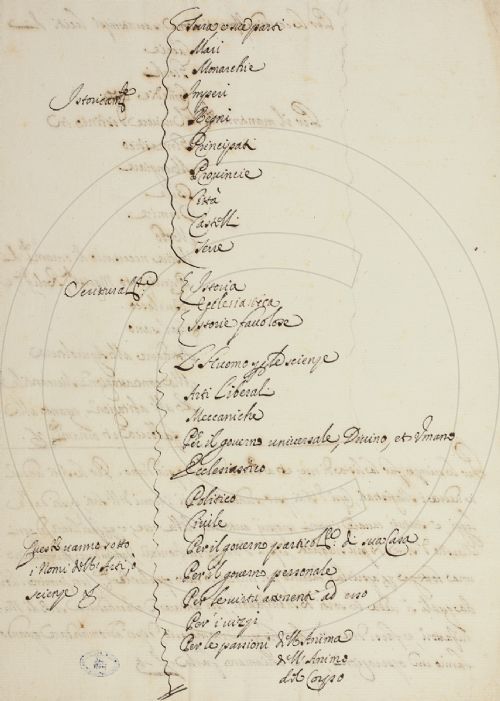 Terra e sue parti
Mari
Monarchie
Istoricamte
Imperi
Regni
Principati
Provincie
Città
Castelli
Terre
Istoria
Ecclesiastica
Istorie favolose
L'Huomo per le scienze
Arti Liberali
Meccaniche
Per il governo universale, Divino, et Umano
Ecclesiastico
Politico
Civile
Per il governo particolre di sua Casa
Questi vanno sotto
i Nomi dell'Arti, ò
scienze
Per il governo personale
Per le virtù attenenti ad esso
Per i vizzi
Per le passioni dell'Anima
dell'Animo
del Corpo